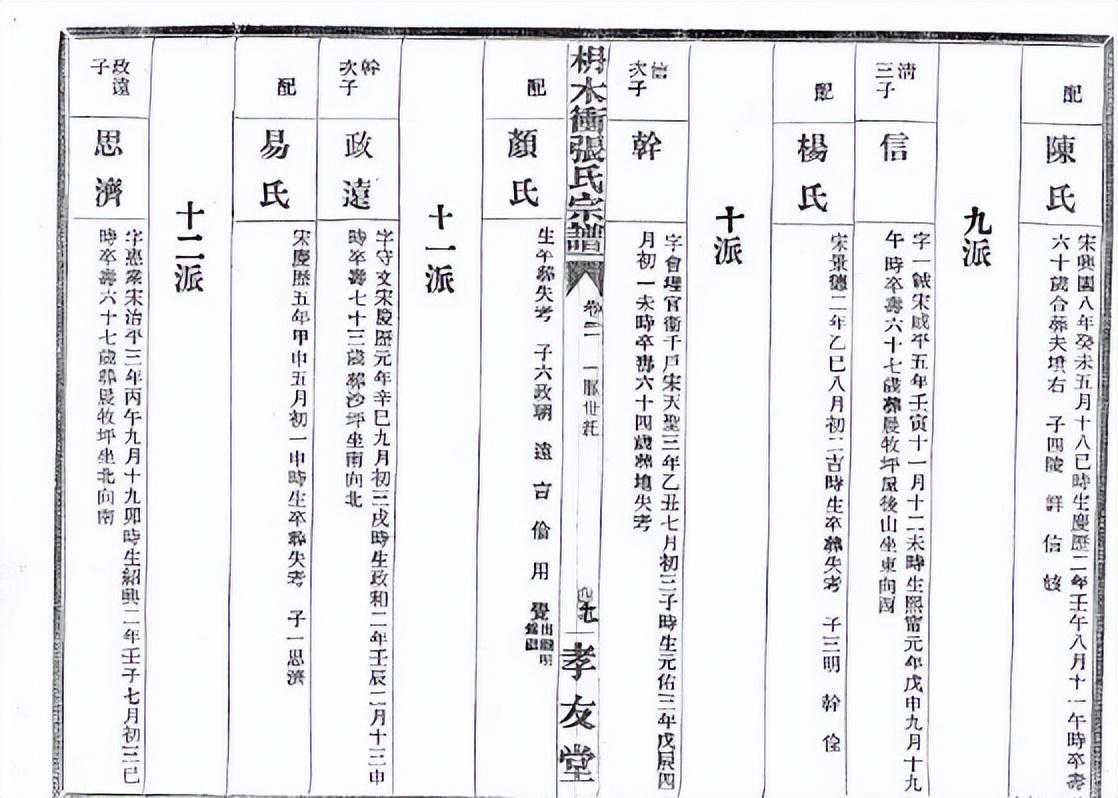 配
陳氏
宋興國八年癸未五月十八巳時生慶歷二年壬午八月十一午時卒壽
六十歲合葬夫墳右 子四 詳 信
九派
清三子
信
字一誠宋咸平五年壬寅十一月十二未時生熙甯元年戊申九月十九
午時卒壽六十七歲葬晨牧坪屋後山坐東向酉
配
楊氏
宋景德二年乙巳八月初二吉時生卒葬失考 子三明 幹 佺
十派
信次子
幹
字會理官衛千戶宋天聖三年乙丑七月初三子時生元佑三年戊辰四
月初一未時卒壽六十四歲葬地失考
栟木衝張氏宗譜
卷二
一脈世紀
孝友堂
配
顏氏
生卒葬失考 子六政朝 遠 言 倫 用 覺
十一派
幹次子
政遠
字守文宋慶歷元年辛巳九月初三戌時生政和二年壬辰二月十三申
時卒壽七十三歲葬沙坪坐南向北
配
易氏
宋慶歷五年甲申五月初一申時生卒葬失考 子一思濟
十二派
政遠子
思濟
字惠眾宋治平三年丙午九月十九卯時生紹興二年壬子七月初三巳
時卒壽六十七歲葬晨牧坪坐北向南